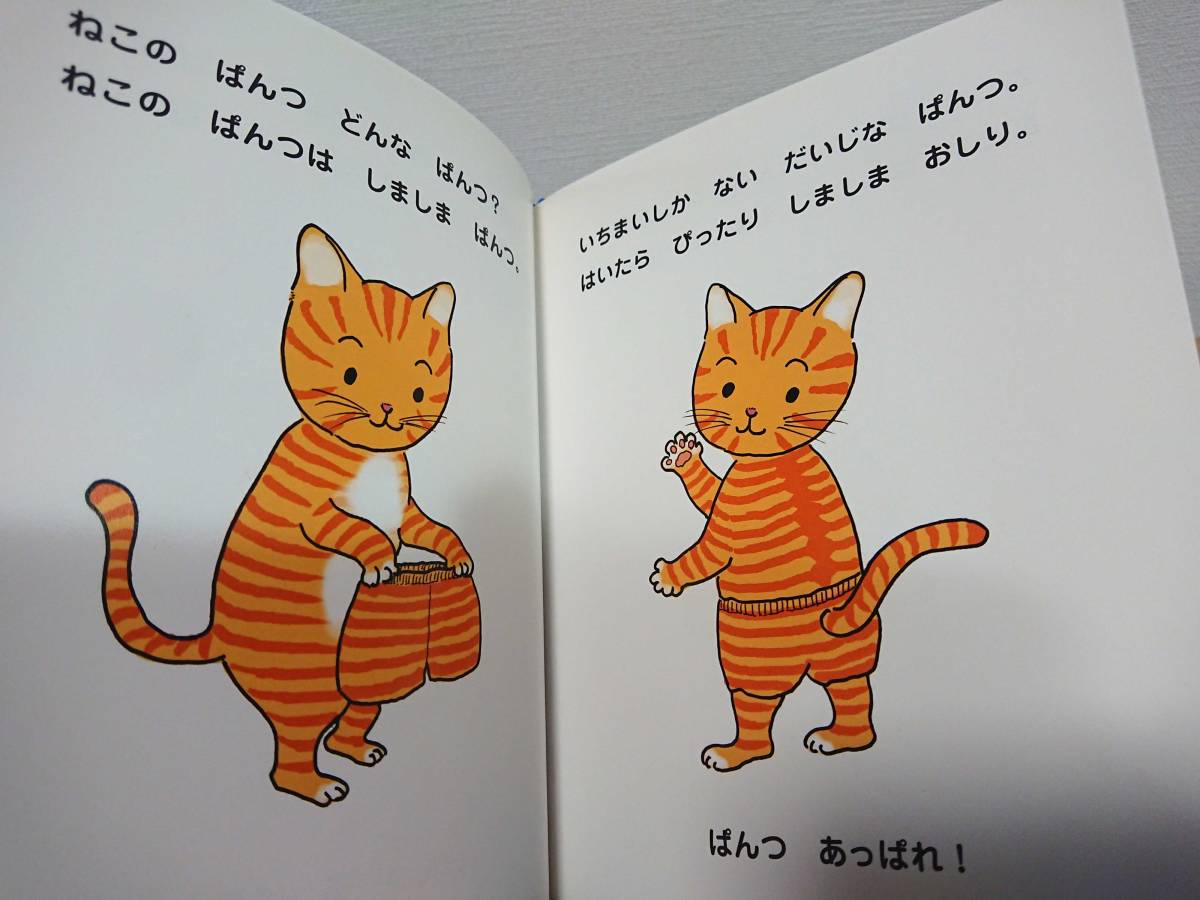 ねこの ぱんつ どんな ぱんつ?
ねこの ぱんつは しましま ぱんつ。
いちまいしか ない だいじな ぱんつ。
はいたら ぴったり しましま おしり。
ぱんつ あっぱれ!